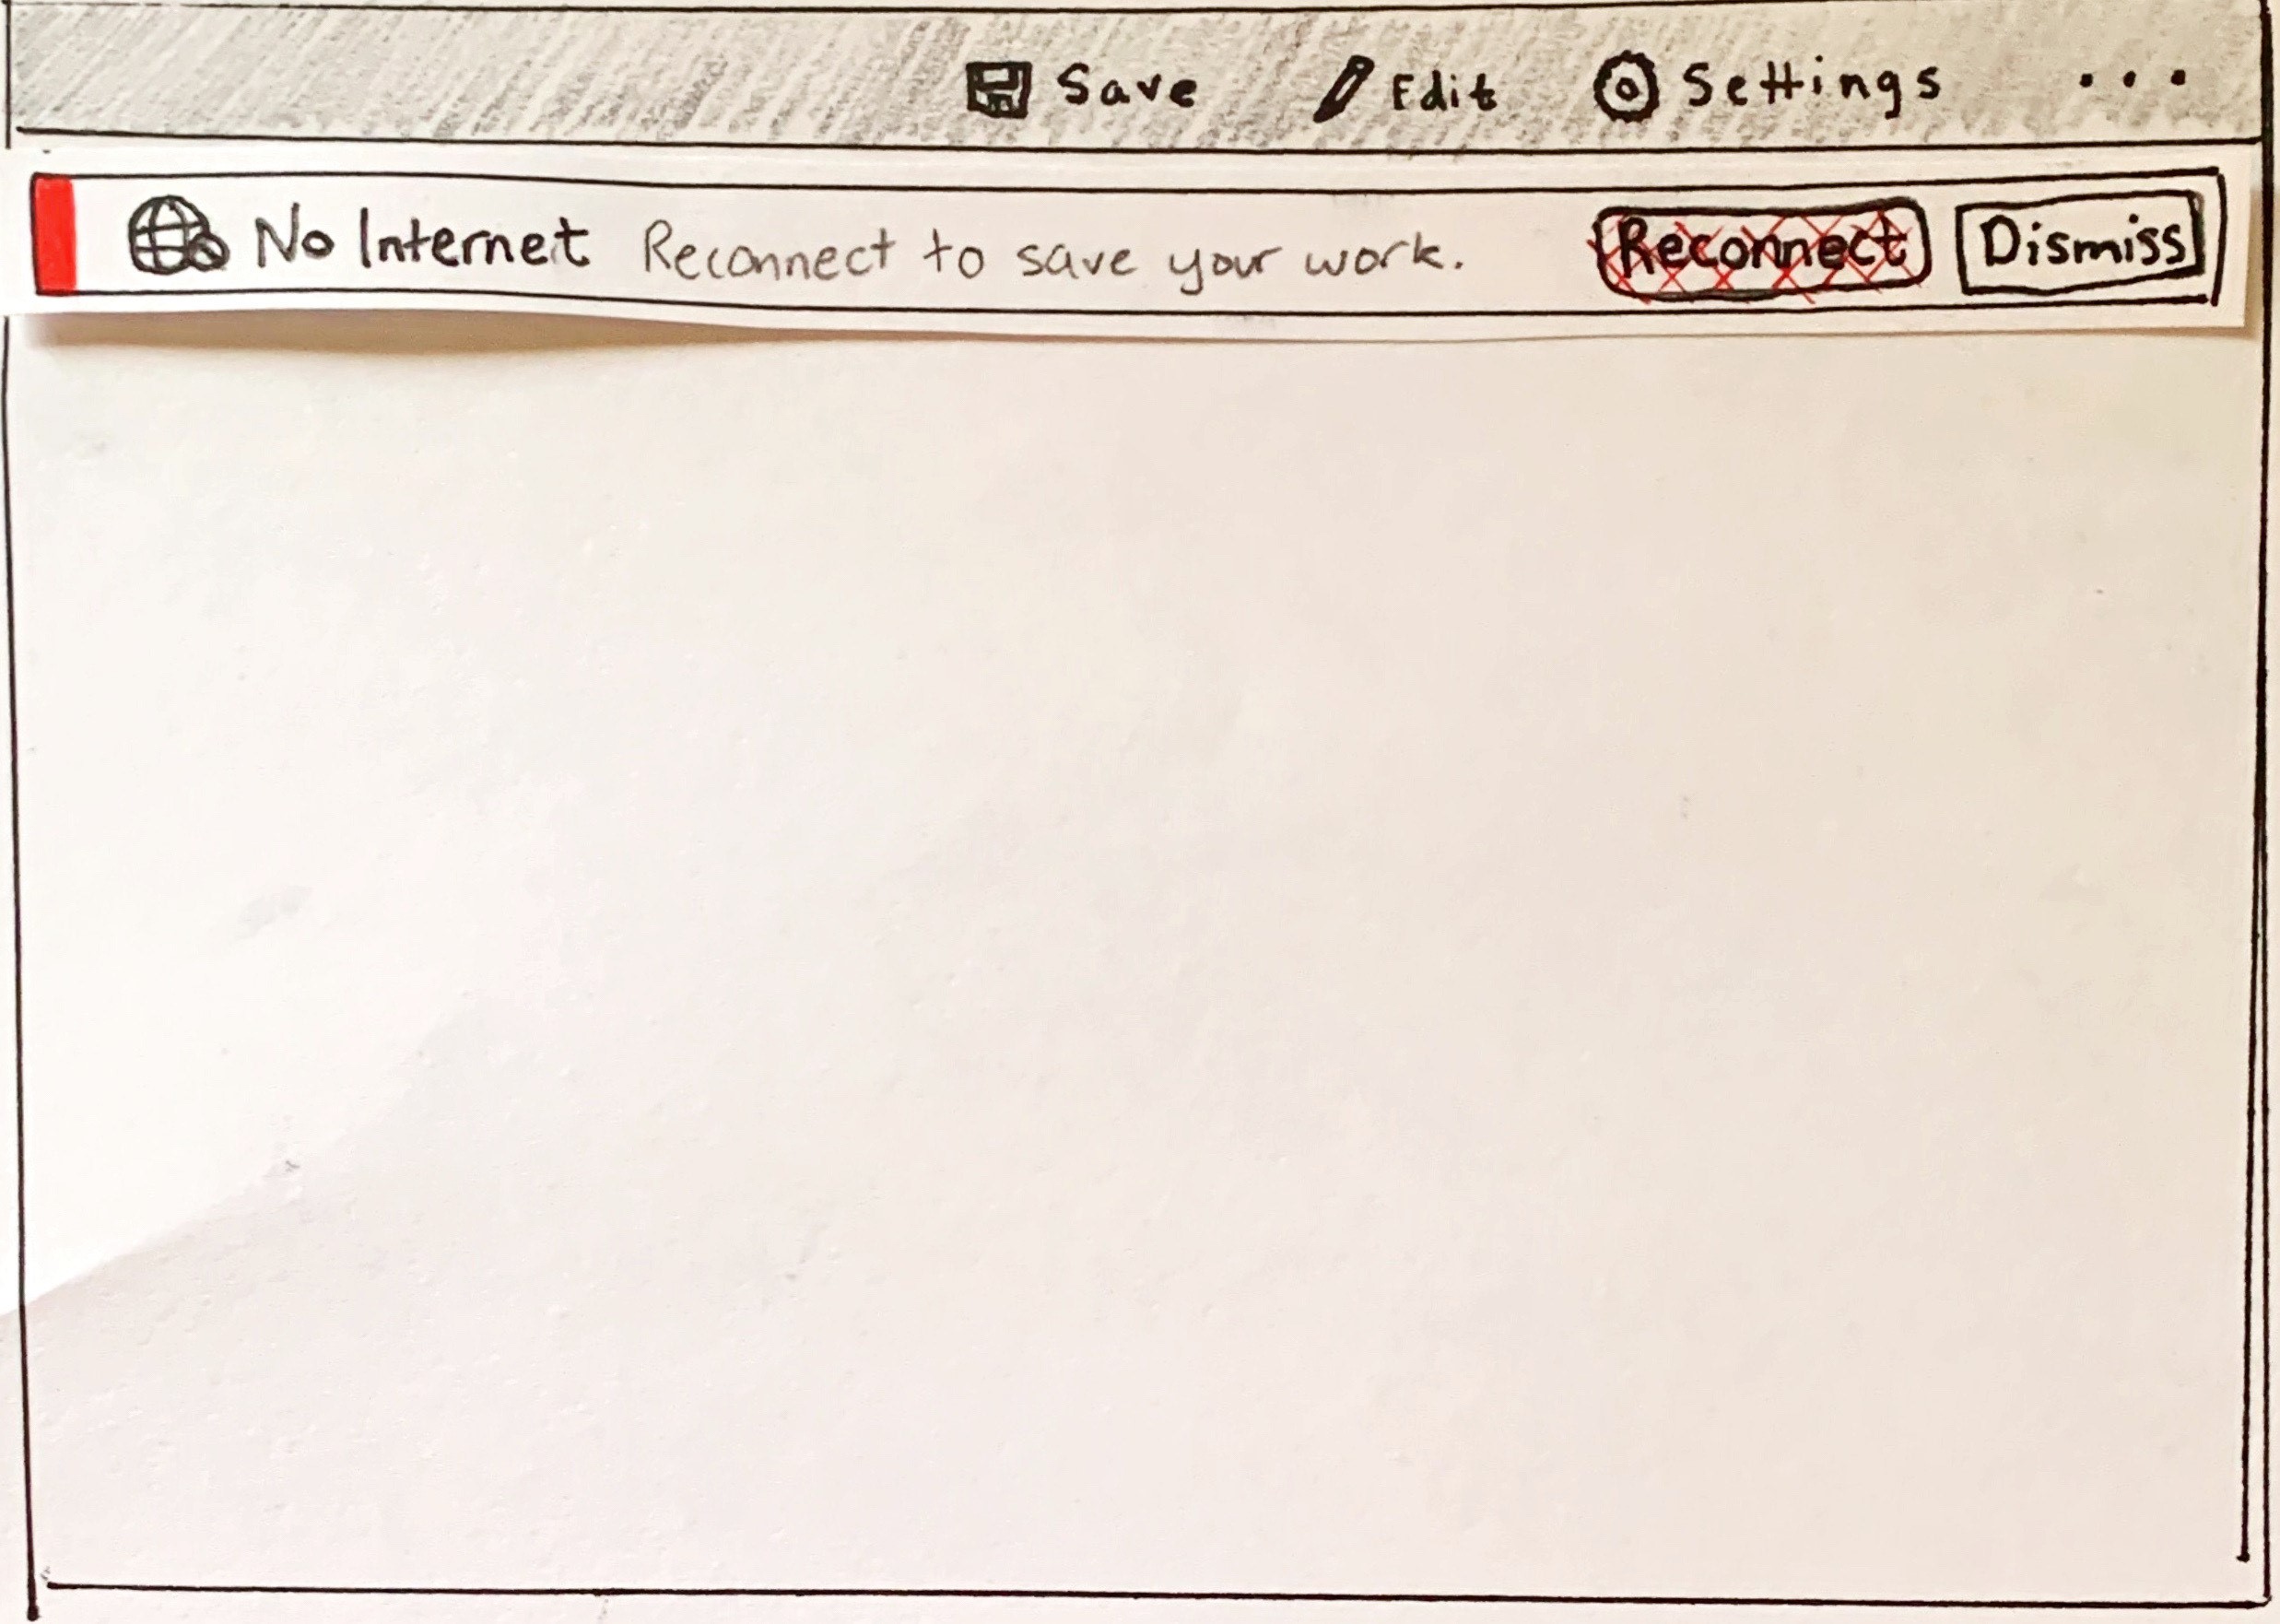 Save Edit Settings ...
No Internet Reconnect to save your work. Reconnect Dismiss